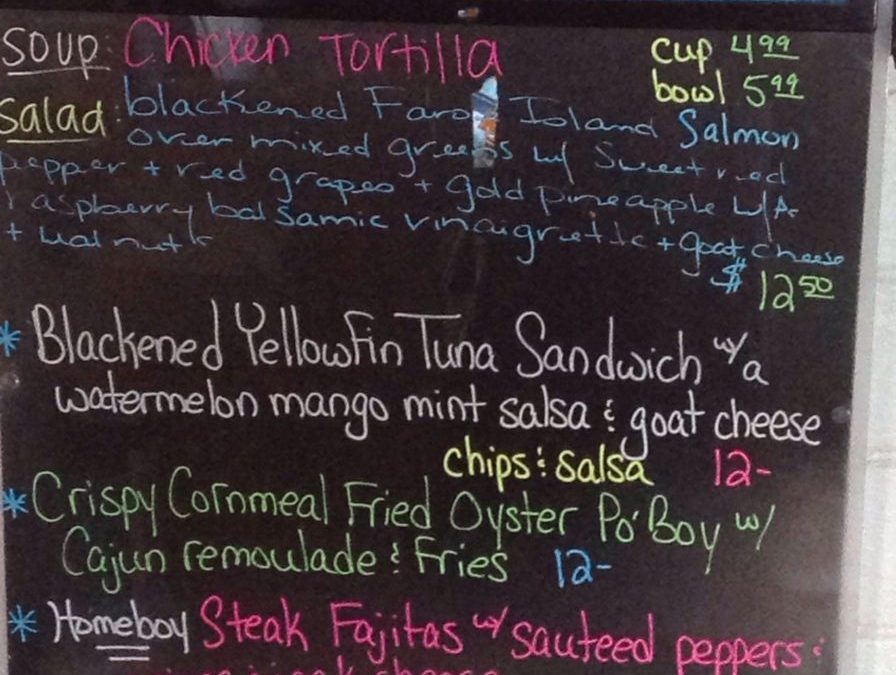 Soup: Chicken Tortilla
cup 4 99
bowl 5 99
Salad: blackened Faroe Island Salmon
over mixed greens w/ Sweet red
pepper + red grapes + gold pineapple w/A
raspberry balsamic vinaigrette + goat cheese
+ walnuts
$ 12 50
* Blackened Yellowfin Tuna Sandwich w/ a
watermelon mango mint salsa & goat cheese
chips & salsa 12-
* Crispy Cornmeal Fried Oyster Po' Boy w/
Cajun remoulade & Fries 12-
* Homeboy Steak Fajitas w/ sauteed peppers &
cheese